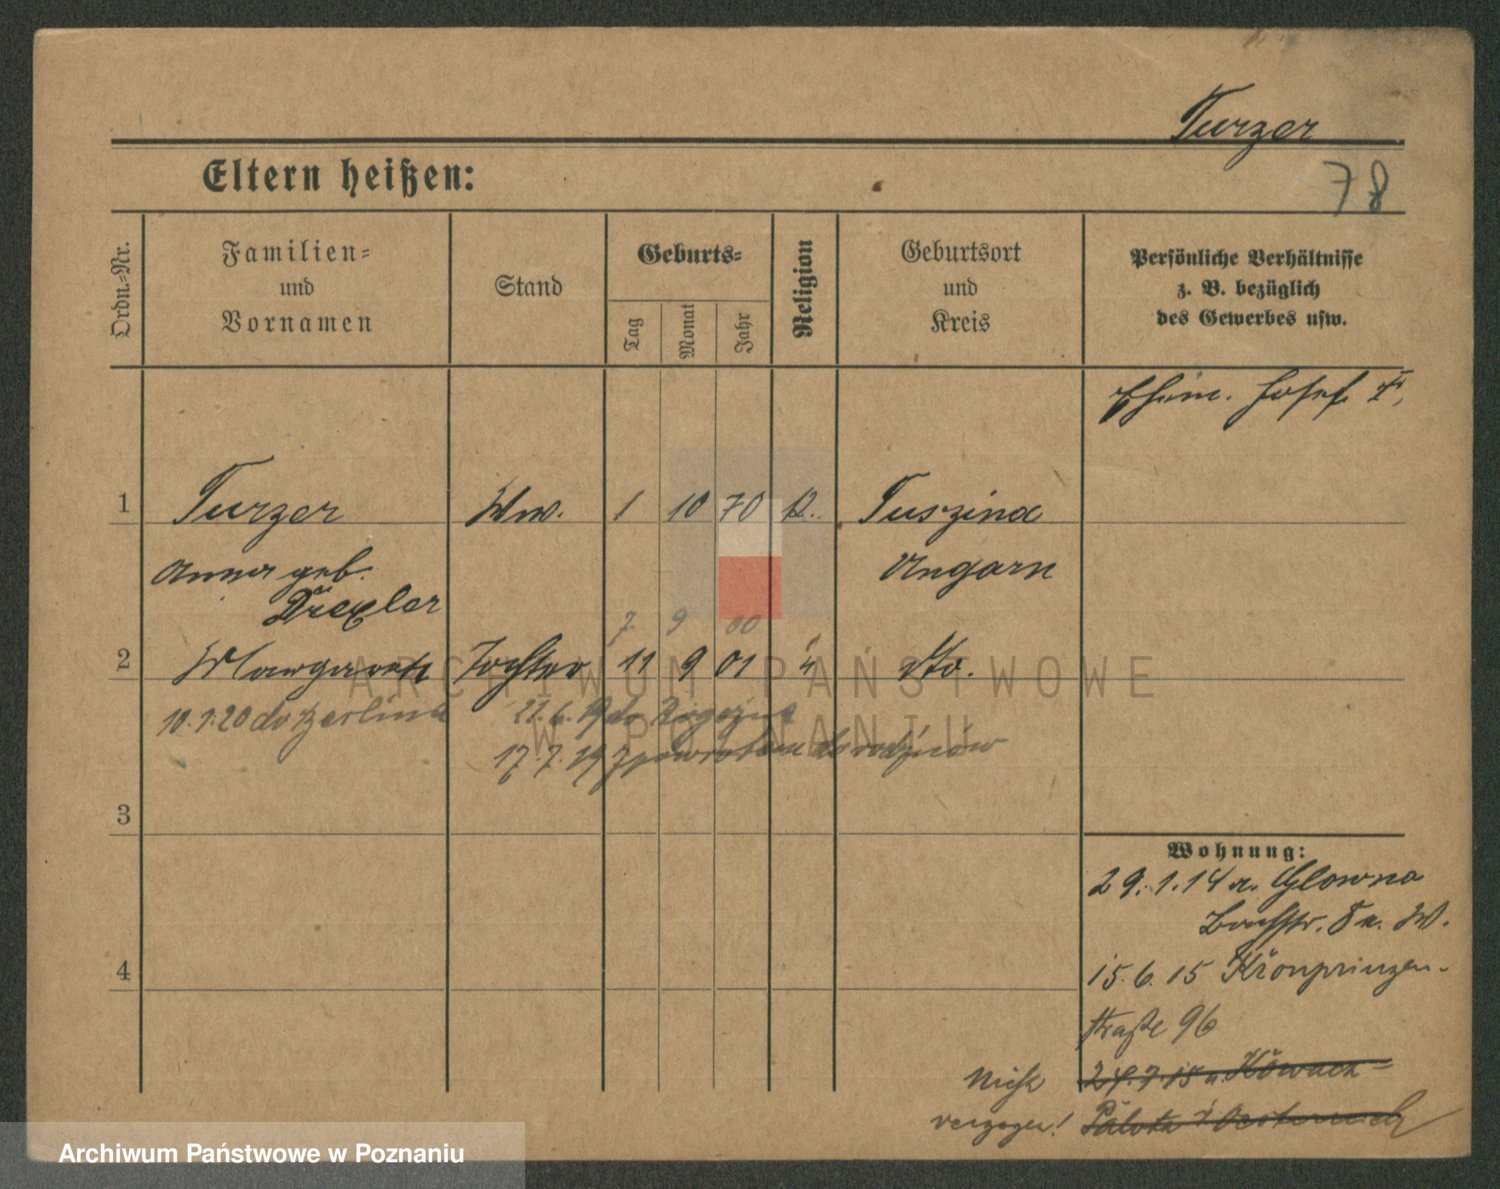 Turzer
Eltern heißen:
78
Ordn.-Nr.
Familien-
und
Vornamen
Stand
Geburts-
Tag
Monat
Jahr
Religion
Geburtsort
und
Kreis
Persönliche Verhältnisse
z. B. bezüglich
des Gewerbes usw.
Ehem. Josef †,
1 Turzer Ww. 1 10 70 k. Tuszina
Anna geb. Ungarn
Drexler
7 9 00
2 Margarete Tochter 11 9 01 " dto.
10.1.20 do Berlina 21.6.19 do
17.7.19 z powrotem do rodziców
3
Wohnung:
29.1.14 v. Glowno
Bachstr. 8 W.
4
15.6.15 Kronprinzen-
straße 96
Nicht 24.7.15 n. Kowacz-
verzogen! Palota i/ Oesterreich
ARCHIWUM PAŃSTWOWE
W POZNANIU
Archiwum Państwowe w Poznaniu